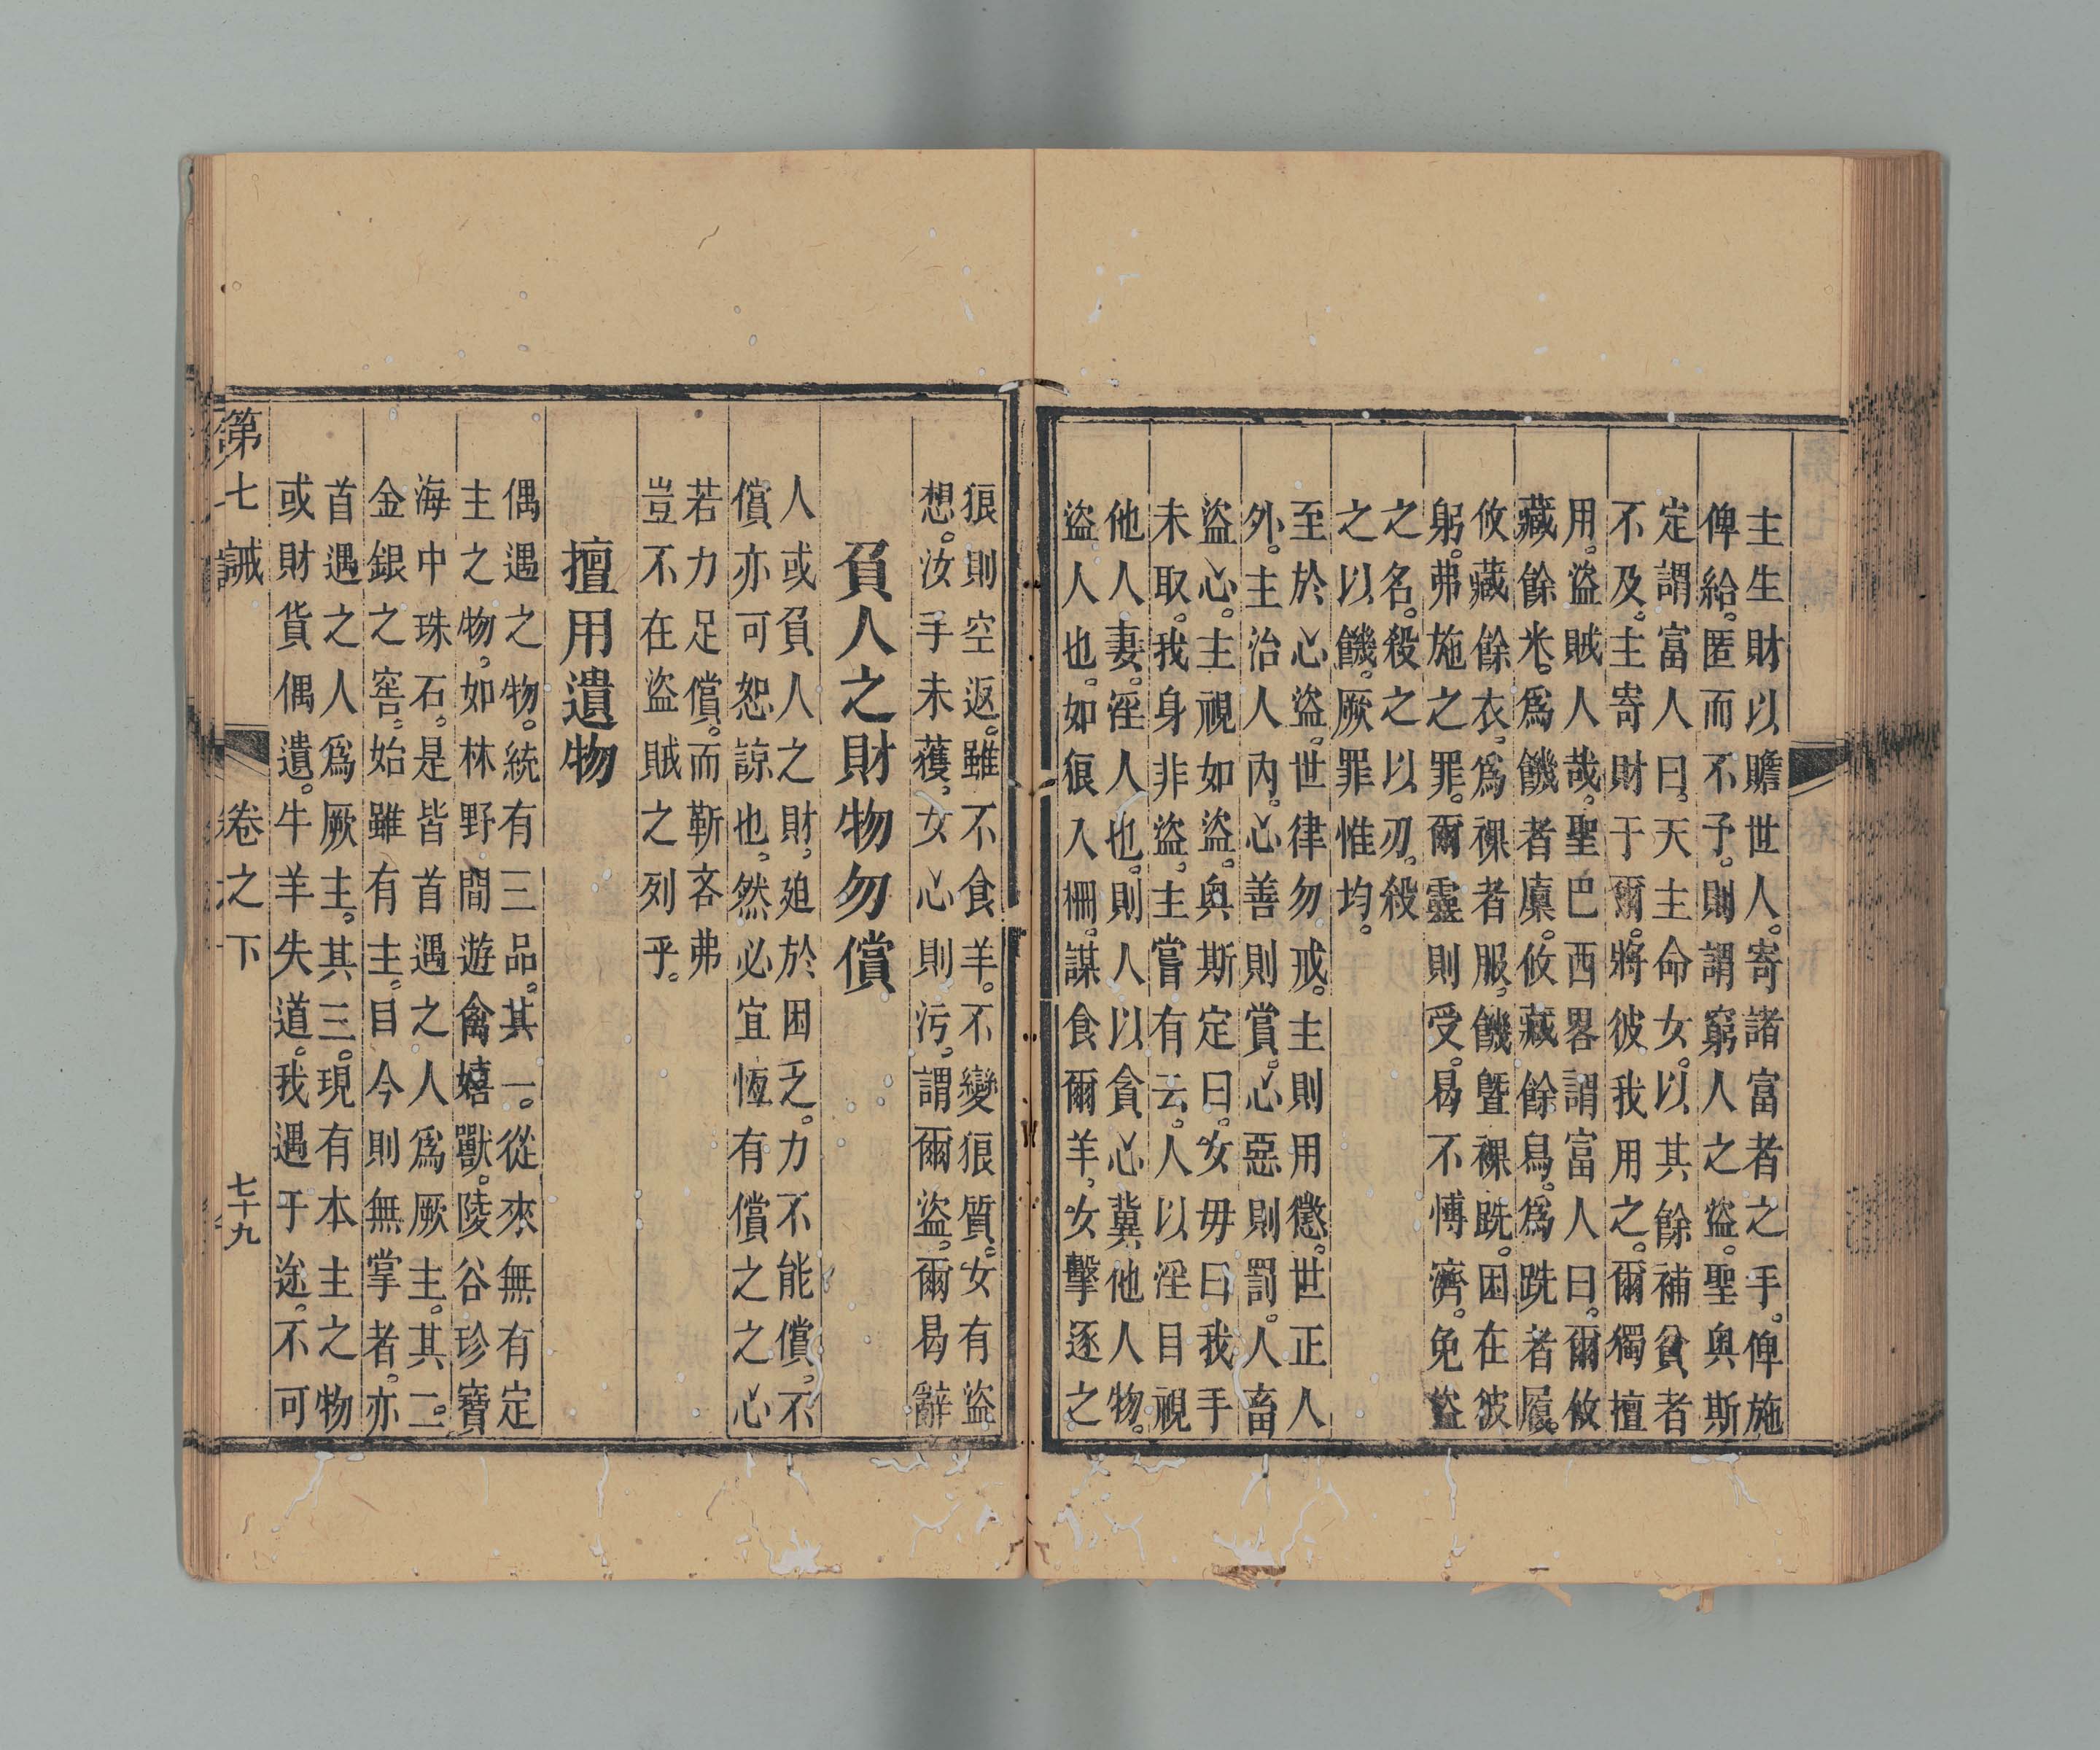 主生財以贍世人。寄諸富者之手。俾施
俾給。匿而不予。則謂窮人之盜。聖奥斯
定謂富人曰。天主命女。以其餘補貧者
不及。主寄財于爾。將彼我用之。爾獨擅
用。盜賊人哉。聖巴西畧謂富人曰。爾攸
藏餘米。爲饑者廩。攸藏餘舄。爲跣者履。
攸藏餘衣。爲裸者服。饑曁裸跣。困在彼
躬。弗施之罪。爾靈則受。曷不愽濟。免盜
之名。殺之以刃。殺
之以饑。厥罪惟均。
至於心盜。世律勿戒。主則用懲。世正人
外。主治人內。心善則賞。心惡則罰。人畜
盜心。主視如盜。奥斯定曰。女毋曰我手
未取。我身非盜。主嘗有云。人以淫目視
他人妻。淫人也。則人以貪心冀他人物。
盜人也。如狼入柵。謀食爾羊。女擊逐之
狼則空返。雖不食羊。不變狼質。女有盜
想。汝手未獲。女心則污。謂爾盜。爾曷辭
負人之財物勿償
人或負人之財。廹於困乏。力不能償。不
償亦可恕諒也。然必宜恆有償之之心
若力足償。而靳吝弗
豈不在盜賊之列乎。
擅用遺物
偶遇之物。統有三品。其一。從來無有定
主之物。如林野間遊禽嬉獸。陵谷珍寶
海中珠石。是皆首遇之人爲厥主。其二。
金銀之窖。始雖有主。目今則無掌者。亦
首遇之人爲厥主。其三。現有本主之物
或財貨偶遺。牛羊失道。我遇于途。不可
第七誡
卷之下
七十九